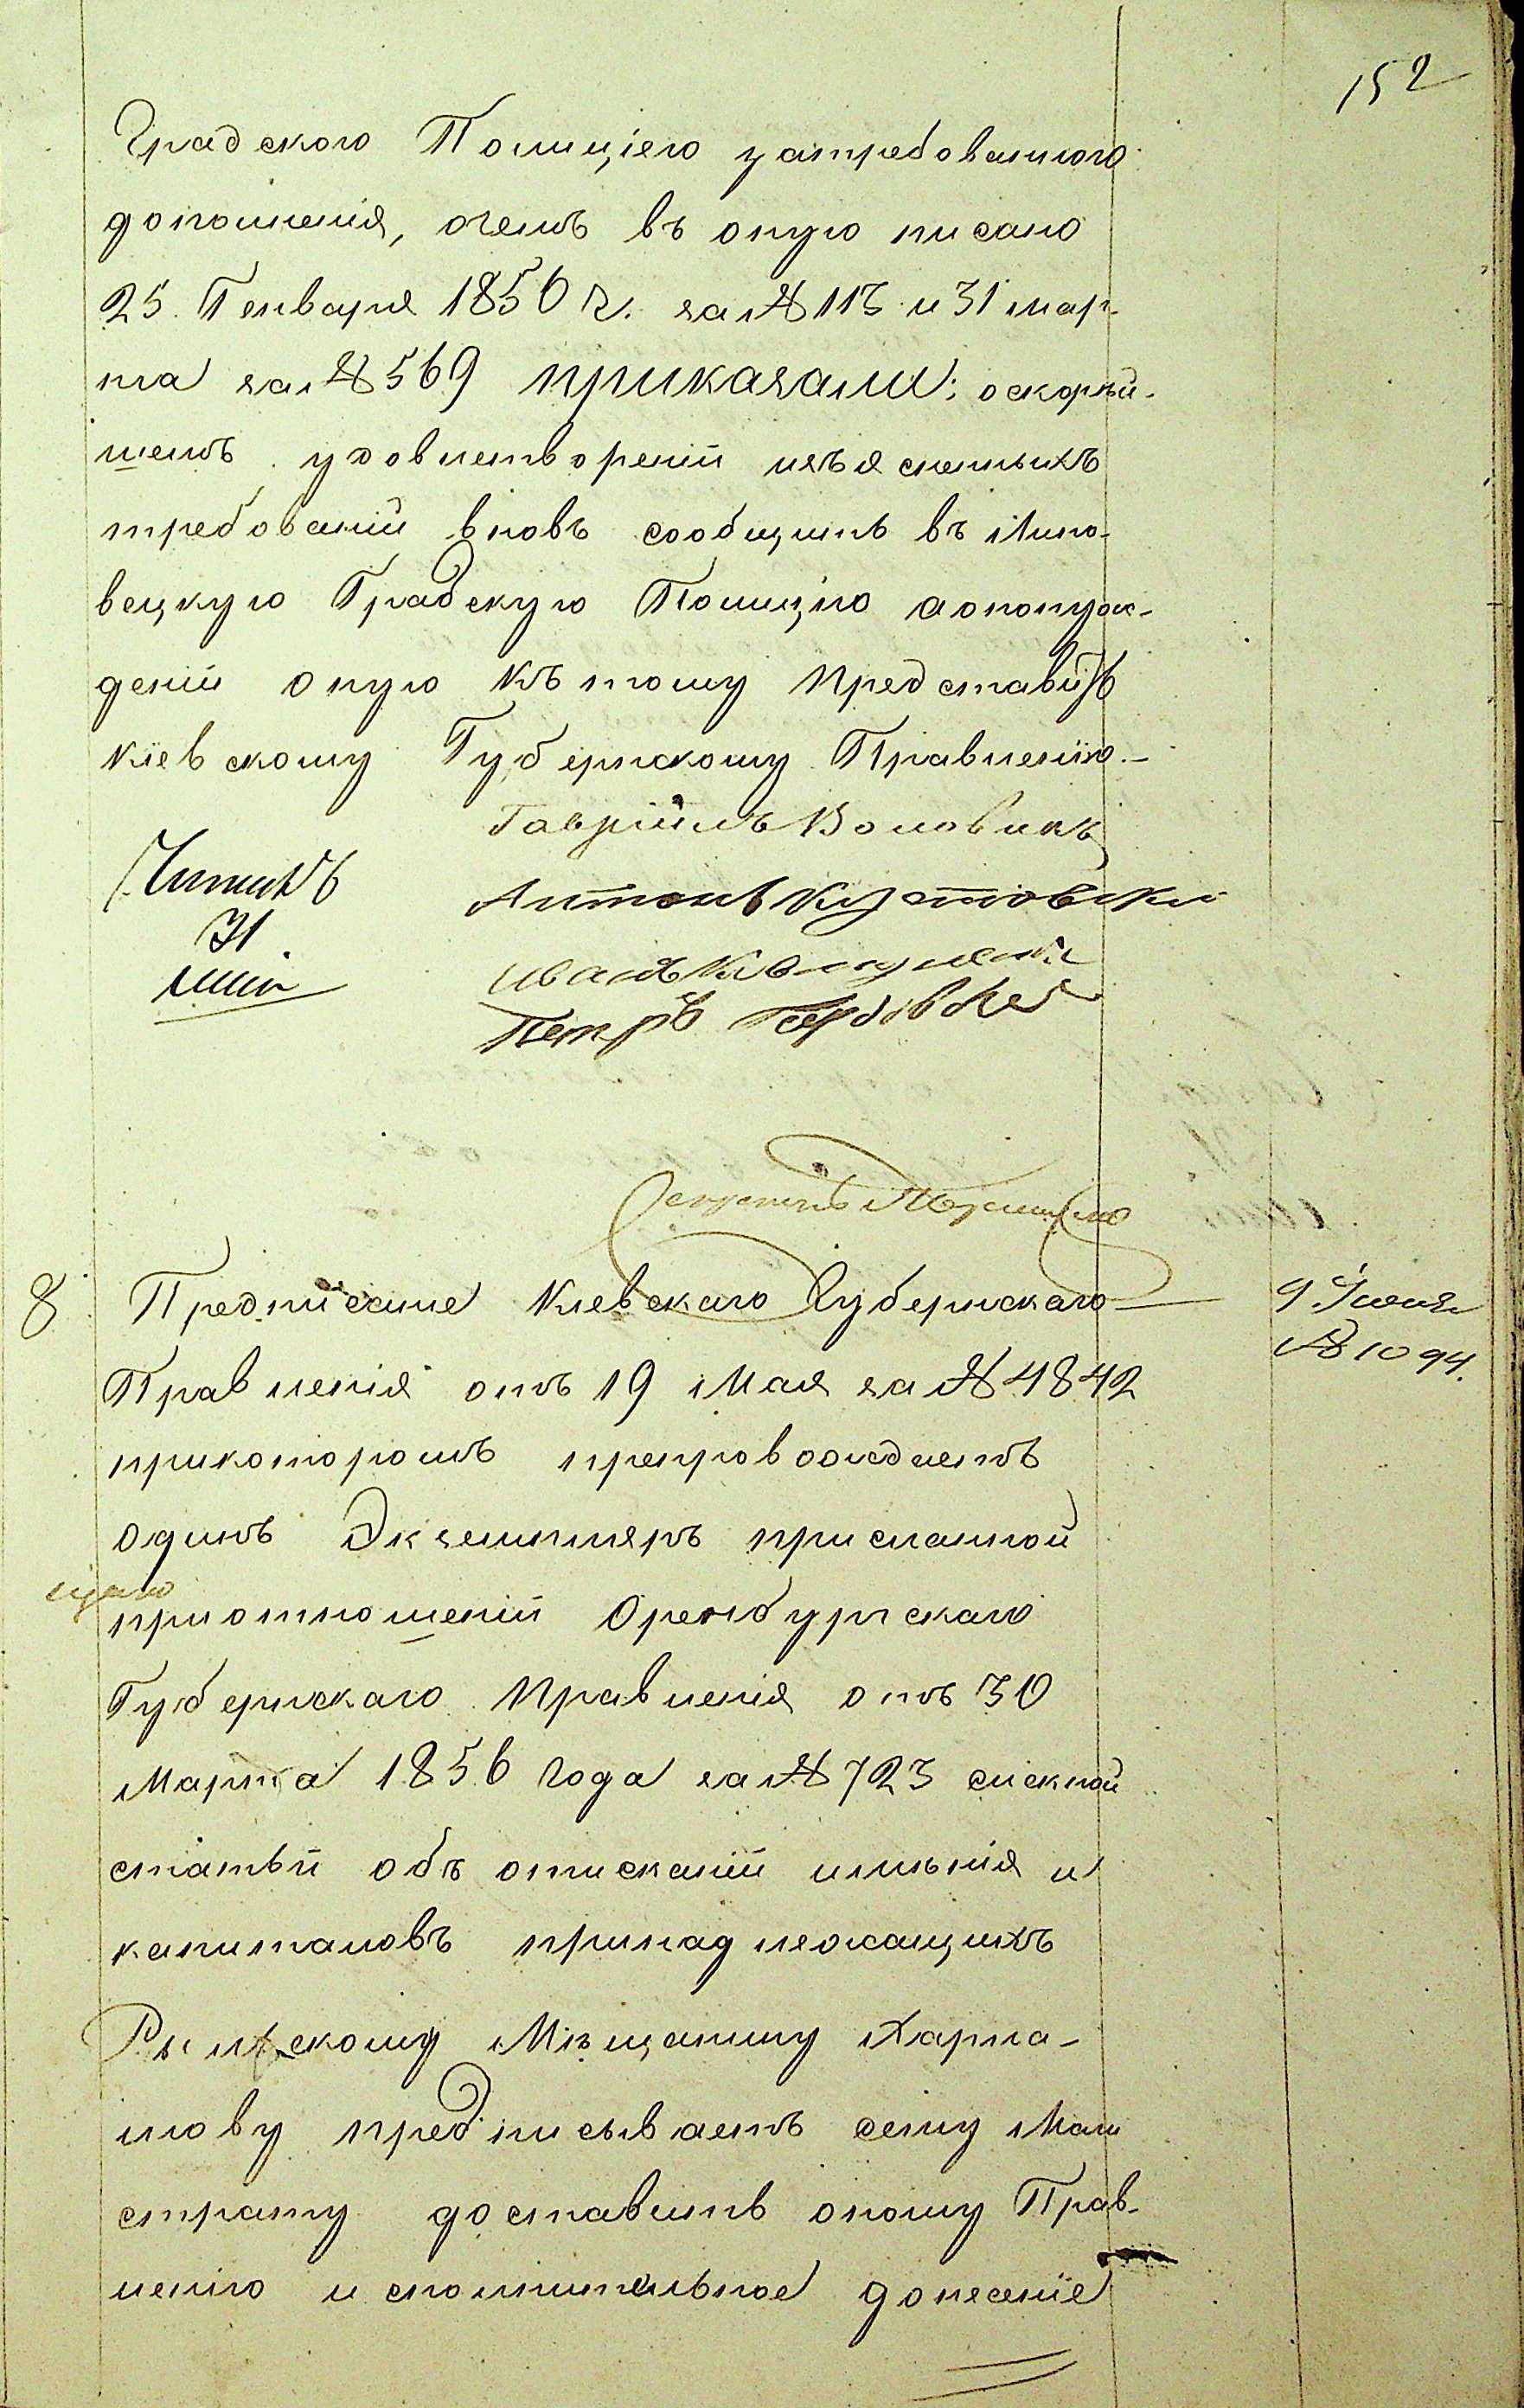 152
Градского Полиціею затребованного
дополненія, очемъ въ оную писано
25. Генваря 1856 г. за № 113 и 31 мар-
та за № 569 приказали: о скорѣй-
шемъ удовлетвореніи изъясненныхъ
требованій вновь сообщить въ Липо-
вецкую Градскую Полицію а о понуж-
деніи оную къ тому представить
Кіевскому Губернскому Правленію.-
Гавріилъ Воловикъ
Читалъ
31
Антонъ
Иванъ
Петръ
8 Предписаніе Кіевскаго Губернскаго
9 Іюня
№ 1094.
Правленія отъ 19 Мая за № 4842
прикоторомъ препровождаетъ
одинъ Экземпляръ присланной
приотношеніи Оренбургскаго
Губернскаго Правленія отъ 30
Марта 1856 года за № 723 сискной
статьи объ отисканіи имѣнія и
капиталовъ принадлежащихъ
Рыльскому Мѣщанину Харла-
мову предписываетъ сему Маги
страту доставить оному Прав-
ленію исполнительное донесеніе